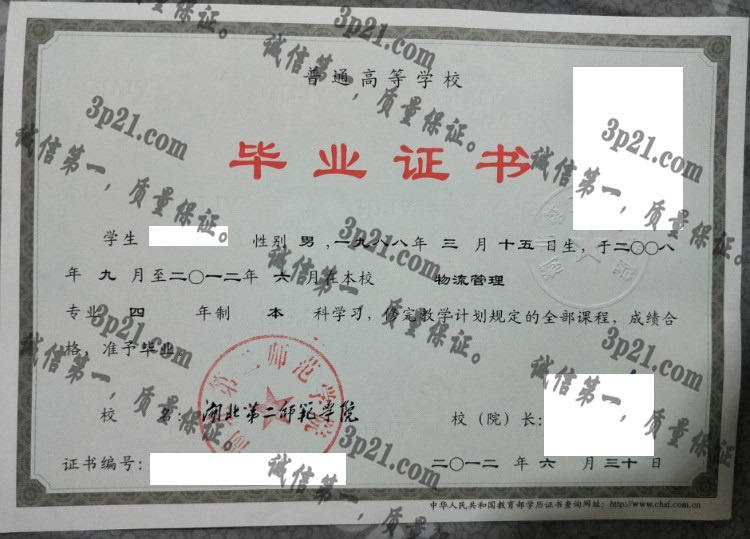 普通高等学校
毕业证书
学生 性别 男 ,一九八八年 三 月 十五 日生，于二〇〇八
年 九 月至二〇一二年 六 月在本校 物流管理
专业 四 年制 本 科学习，修完教学计划规定的全部课程，成绩合
格，准予毕业。
校 名：湖北第二师范学院
校（院）长：
证书编号：
二〇一二 年 六 月 三十 日
中华人民共和国教育部学历证书查询网址：http://www.chsi.com.cn
湖北第二师范学院
3p21.com
诚信第一，质量保证。
3p21.com
诚信第一，质量保证。
3p21.com
诚信第一，质量保证。
3p21.com
诚信第一，质量保证。
3p21.com
诚信第一，质量保证。
3p21.com
诚信第一，质量保证。
3p21.com
诚信第一，质量保证。
3p21.com
诚信第一，质量保证。
质量保证。